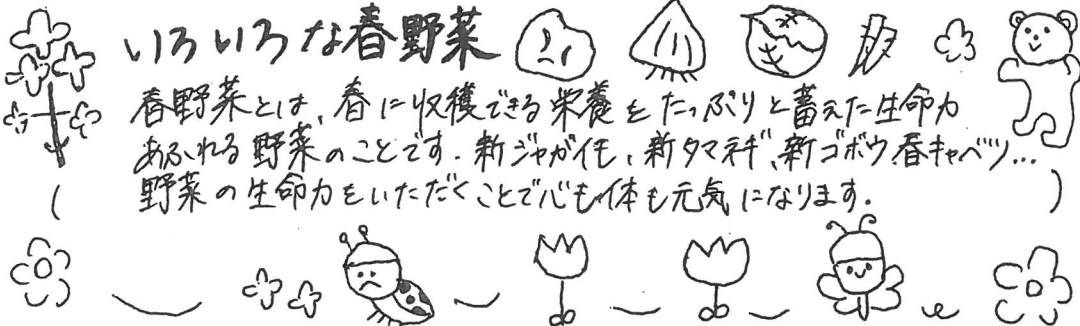 いろいろな春野菜
春野菜とは、春に収穫できる栄養をたっぷりと蓄えた生命力
あふれる野菜のことです.新ジャガイモ、新タマネギ、新ゴボウ春キャベツ...
野菜の生命力をいただくことで心も体も元気になります.